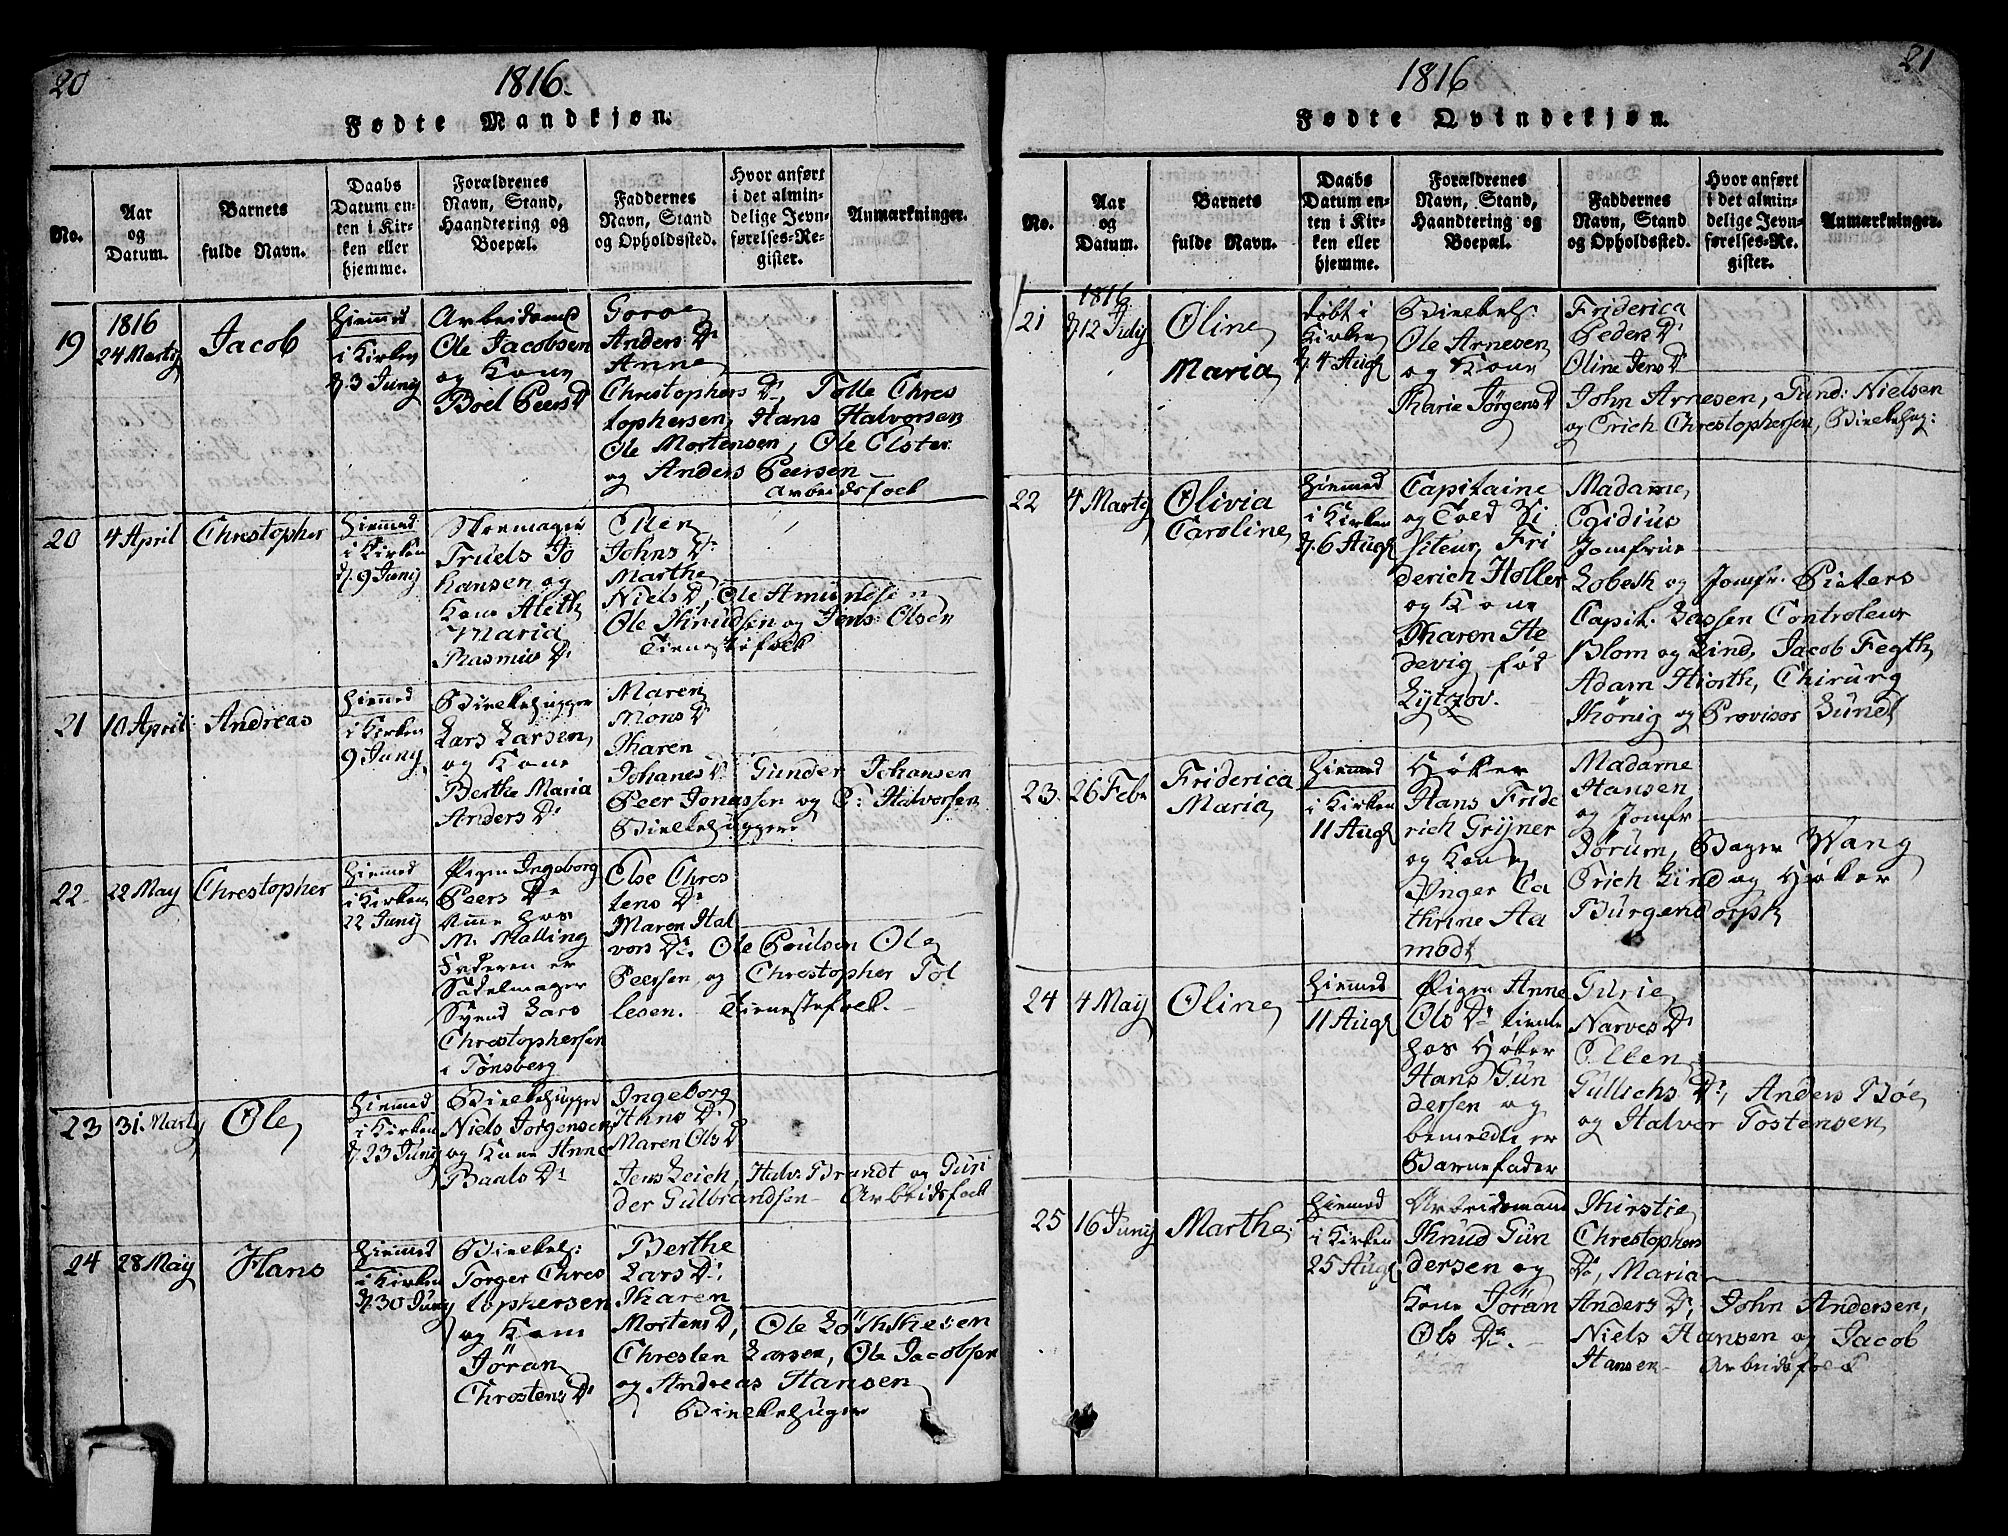 20
1816.
Fødte Mandkjøn.
No.
Aar
og
Datum.
Barnets
fulde Navn.
Daabs
Datum en-
ten i Kir-
ken eller
hjemme.
Forældrenes
Navn, Stand,
Haandtering og
Boepæl.
Faddernes
Navn, Stand
og Opholdssted.
Hvor anført
i det almin-
delige Jevn-
førelses-Re-
gister.
Anmærkninger.
19
1816
24 Marty
Jacob
Hiemmed
i Kirken
d. 3 Juny
Arbeidsmd
Ole Jacobsen
og Kone
Boel Peers Dr
Goroe
Anders Dr
Anne
Christophers Dr, Tolle Chres
tophersen, Hans Halvorsen
Ole Mortensen, Ole Olster
og Anders Peersen
Arbeidsfolk
20
4 April
Chrestopher
Hiemmed
i Kirken
d. 9 Juny
Skoemager
Truels Jo
hansen og
Kone Aleth
Maria
Rasmus Dr
Ellen
Johns Dr
Marthe
Niels Dr, Ole Amundsen
Ole Knudsen og Jens Olsen
Tienestefolk
21
10 April
Andreas
Hiemmed
i Kirken
9 Juny
Bielkehugger
Lars Larsen,
og Kone
Berthe Maria
Anders Dr
Maren
Mons Dr
Karen
Johanes Dr Gunder Johansen
Peer Jonassen og P: Halvorsen
Bielkehuggere
22
22 May
Chrestopher
Hiemmed
i Kirken
22 Juny
Pigen Ingeborg
Peers Dr
Amme hos
M. Malling
Faderen er
Sadelmager
Svend Lars
Chrestophersen
i Tønsberg
Else Chres
tens Dr
Maren Hal
vors Dr. Ole Poulsen Ole
Peersen, og Chrestopher Tol
lesen. Tienestefolk.
23
31. Marty
Ole
Hiemmed
i Kirken
d. 23 Juny
Bielkehugger
Niels Jorgensen
og Kone Anne
Baals Dr
Ingeborg
Hans Dr
Maren Ols Dr
Jens Leich, Halv. Brandt og Gun
der Gulbrandsen Arbeidsfolk
24
28 May
Hans
Hiemmed
i Kirken
d. 30 Juny
Bielkeh:
Torger Chres
tophersen
og Kone
Jöran
Chrestens Dr
Berthe
Lars Dr.
Karen
Mortens Dr, Ole
Chresten Larsen, Ole Jacobsen
og Andreas Hansen
Bielkehugere
21
1816
Fødte Qvindekjøn.
No.
Aar
og
Datum.
Barnets
fulde Navn.
Daabs
Datum en-
ten i Kir-
ken eller
hjemme.
Forældrenes
Navn, Stand,
Haandtering og
Boepæl.
Faddernes
Navn, Stand
og Opholdssted.
Hvor anført
i det almin-
delige Jevn-
førelses-Re-
gister.
Anmærkninger.
21
1816
d. 12 July
Oline
Maria
Døbt i
Kirken
d. 4 Aug
Bielkeh:
Ole Arnesen
og Kone
Marie Jørgens D
Friderica
Peders Dr
Oline Jens Dr
John Arnesen, Gund: Nielsen
og Erich Chrestophersen, Bielkehug:
22
4 Marty
Olivia
Caroline
Hiemmed
i Kirken
d. 6 Aug
Capitaine
og Told Vi
siteur Fri
derich Holler
og Kone
Karen He
devig, fød
Lytzov.
Madame
Egidius
Jomfrue
Lobeth og Jomfr. Pieters
Capit. Lassen Controleur
Blom og Lind, Jacob Fegth
Adam Hiorth, Chirurg
König og Provisor Lund
23.
26 Febr
Friderica
Maria
Hiemmed
i Kirken
11 Aug
Høker
Hans Fride
rich Grijner
og Kone
Inger Ca
thrine Aa
modt
Madame
Hansen
og Jomfr
Jørum, Bager Wang
Erich Lind og Høker
Burgendorph
24
4 May
Oline
Hiemmed
11 Aug
Pigen Anne
Ols Dr tiene
hos Høker
Hans Gun
dersen og
bemeldte er
Barnefader
Gurie
Narves Dr
Ellen
Gullichs Dr, Anders Böe
og Halvor Tostensen
25
16 Juny
Marthe
Hiemmed
i Kirken
25 Aug
Arbeidsmand
Knud Gun
dersen og
Kone Jöran
Ols Dr.
Kirstie
Chrestophers
Dr, Maria
Anders Dr, John Andersen,
Niels Hansen og Jacob
Hansen Arbeidsfolk